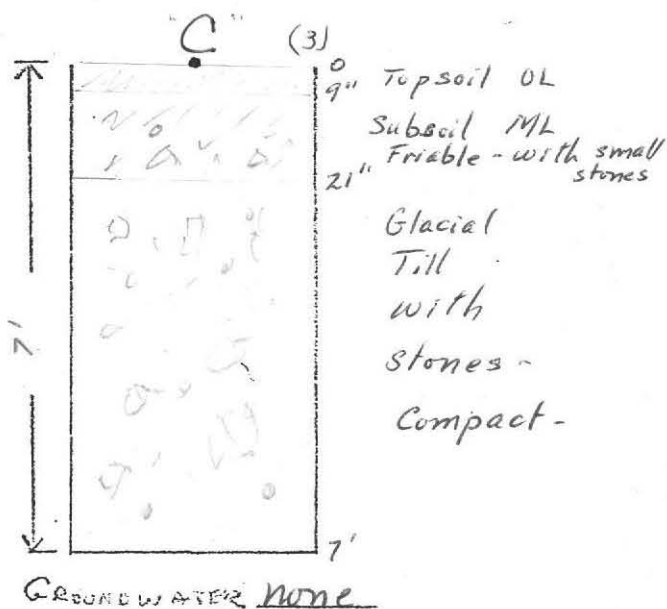 "C" (3)
0
9" Topsoil OL
Subsoil ML
Friable - with small
stones
21"
Glacial
Till
with
Stones -
Compact -
7'
7'
GROUNDWATER none